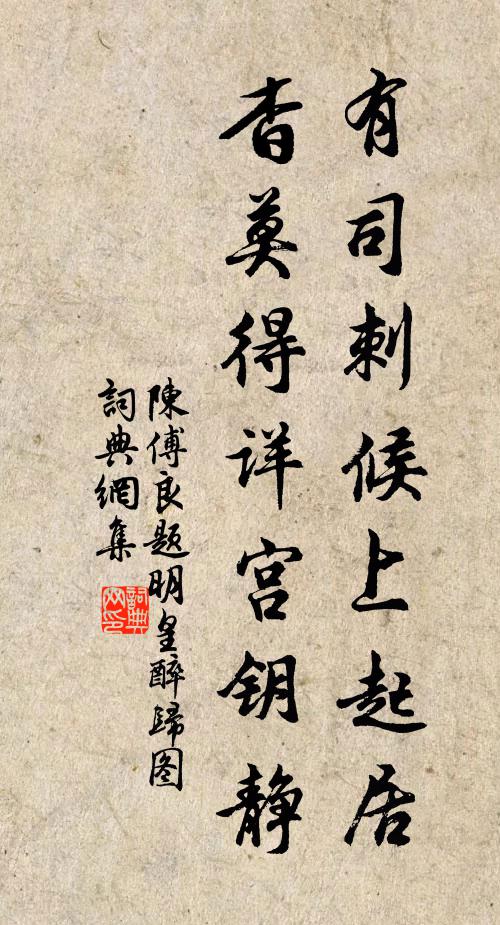 有司刺候上起居
杳莫得详宫钥静
陳傅良题明皇醉歸图
詞典網集
詞典
网印